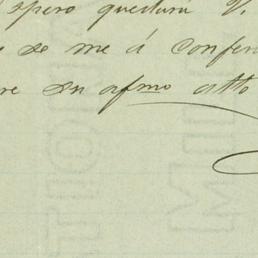 espero quedará V.
se me á confer
re su afmo atto